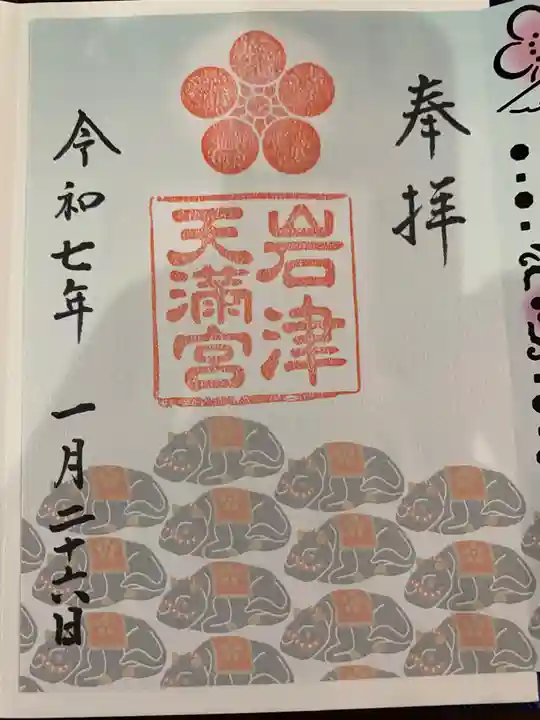 奉拝
岩津
天満宮
令和七年 一月二十六日